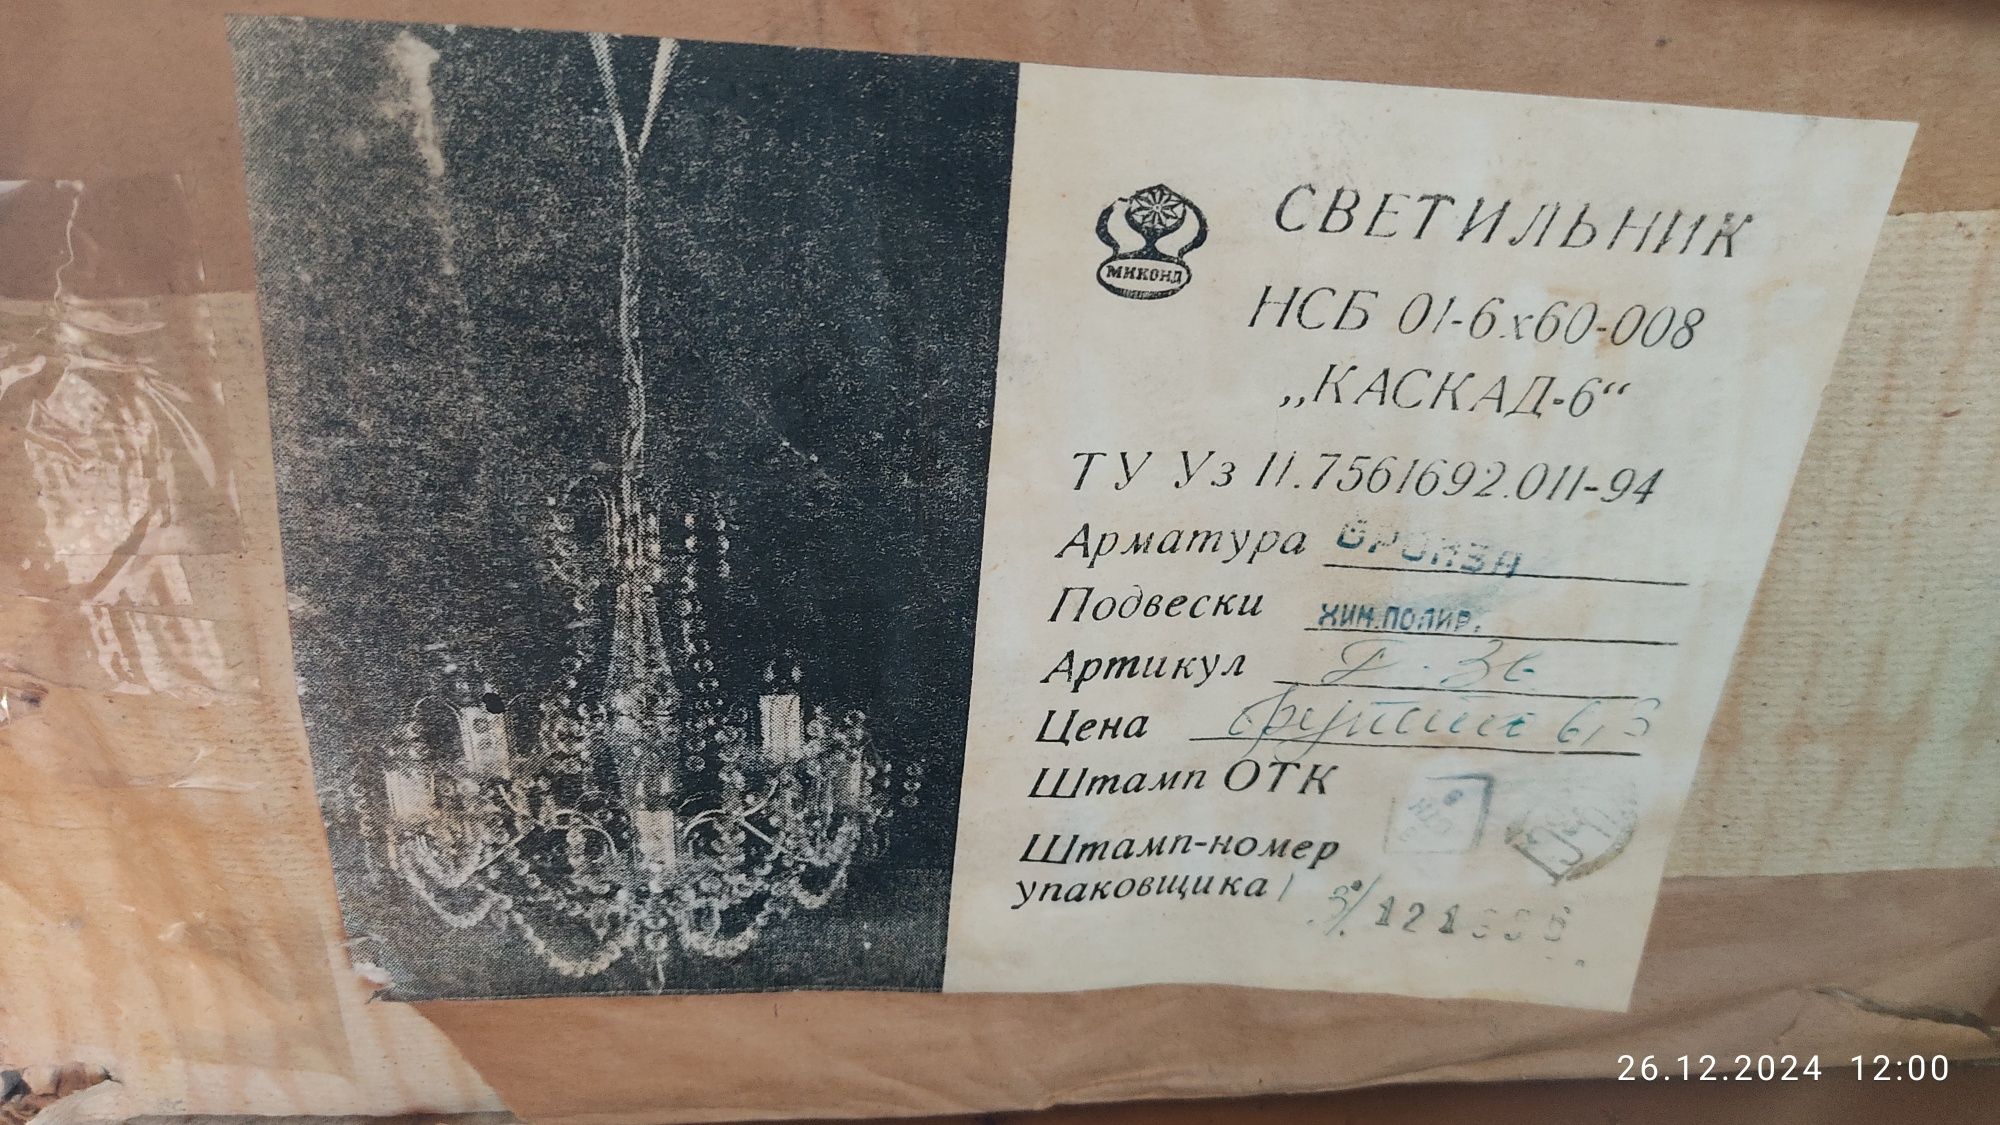 МИКОНД
СВЕТИЛЬНИК
НСБ 01-6х60-008
„КАСКАД-6“
ТУ Уз 11.7561692.011-94
Арматура БРОНЗА
Подвески ХИМ.ПОЛИР.
Артикул
Цена
Штамп ОТК
Штамп-номер
упаковщика
26.12.2024 12:00